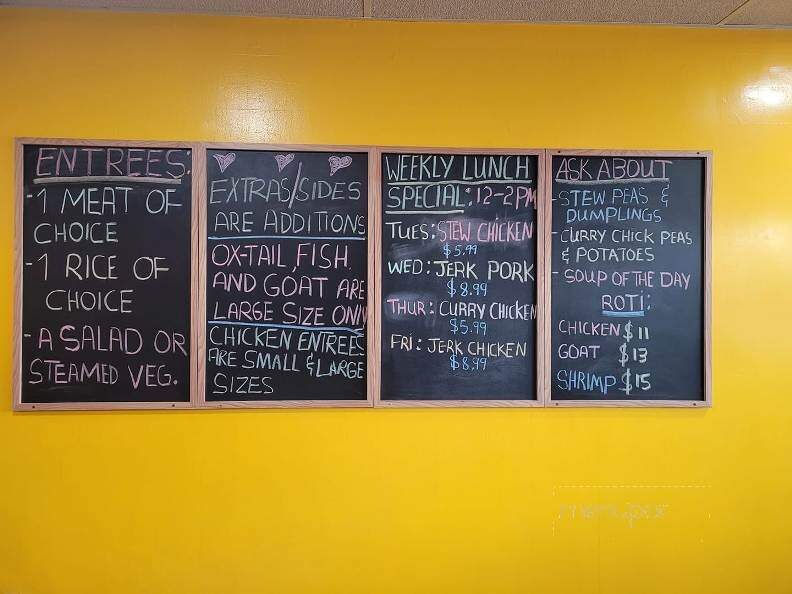 ENTREES:
-1 MEAT OF
CHOICE
-1 RICE OF
CHOICE
-A SALAD OR
STEAMED VEG.
EXTRAS/SIDES
ARE ADDITIONS
OX-TAIL, FISH
AND GOAT ARE
LARGE SIZE ONLY
CHICKEN ENTREES
ARE SMALL & LARGE
SIZES
WEEKLY LUNCH
SPECIAL: 12-2PM
TUES: STEW CHICKEN
$5.99
WED: JERK PORK
$8.99
THUR: CURRY CHICKEN
$5.99
FRI: JERK CHICKEN
$8.99
ASK ABOUT
-STEW PEAS &
DUMPLINGS
-CURRY CHICK PEAS
& POTATOES
- SOUP OF THE DAY
ROTI:
CHICKEN $11
GOAT $13
SHRIMP $15